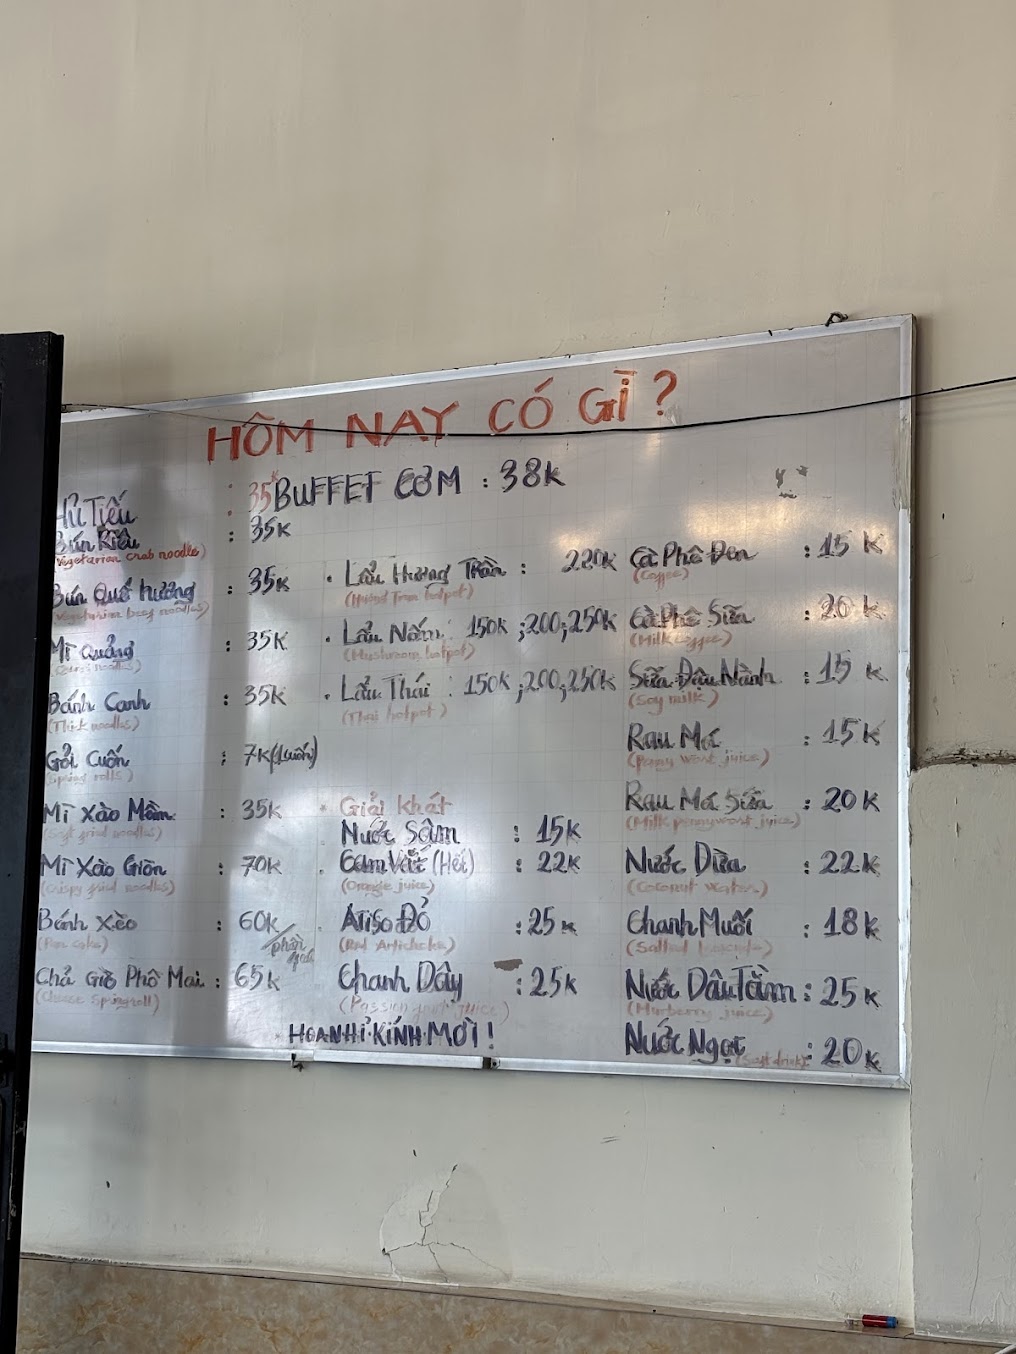 HÔM NAY CÓ GÌ ?
Hủ Tiếu : 35K
Bún Riêu : 35K
(Vegetarian crab noodle)
Bún Quế hương : 35K
(Vegetarian beef noodles)
Mì Quảng : 35K
noodles)
Bánh Canh : 35K
(Thick noodles)
Gỏi Cuốn : 7K(1cuốn)
(Spring rolls)
Mì Xào Mềm : 35K
(Soft fried noodles)
Mì Xào Giòn : 70K
(Crispy fried noodles)
Bánh Xèo : 60K/phần
(Pan cake)
Chả Giò Phô Mai : 65K
(Cheese Spring roll)
BUFFET CƠM : 38K
• Lẩu Hương Trần : 220K
(Hương Tran hotpot)
• Lẩu Nấm : 150K ; 200 ; 250K
(Mushroom hotpot)
• Lẩu Thái : 150K ; 200 ; 250K
(Thai hotpot)
• Giải khát
Nước Sâm : 15K
Cam Vắt (Hết) : 22K
(Orange juice)
Atiso Đỏ : 25K
(Red Artichoke)
Chanh Dây : 25K
(Passion fruit juice)
HOAN HỈ KÍNH MỜI !
Cà Phê Đen : 15K
(Coffee)
Cà Phê Sữa : 20K
(Milk coffee)
Sữa Đậu Nành : 15K
(Soy milk)
Rau Má : 15K
(Penny wort juice)
Rau Má Sữa : 20K
(Milk pennywort juice)
Nước Dừa : 22K
(Coconut water)
Chanh Muối : 18K
(Salted
Nước Dâu Tằm : 25K
(Murberry juice)
Nước Ngọt (Soft drink) : 20K